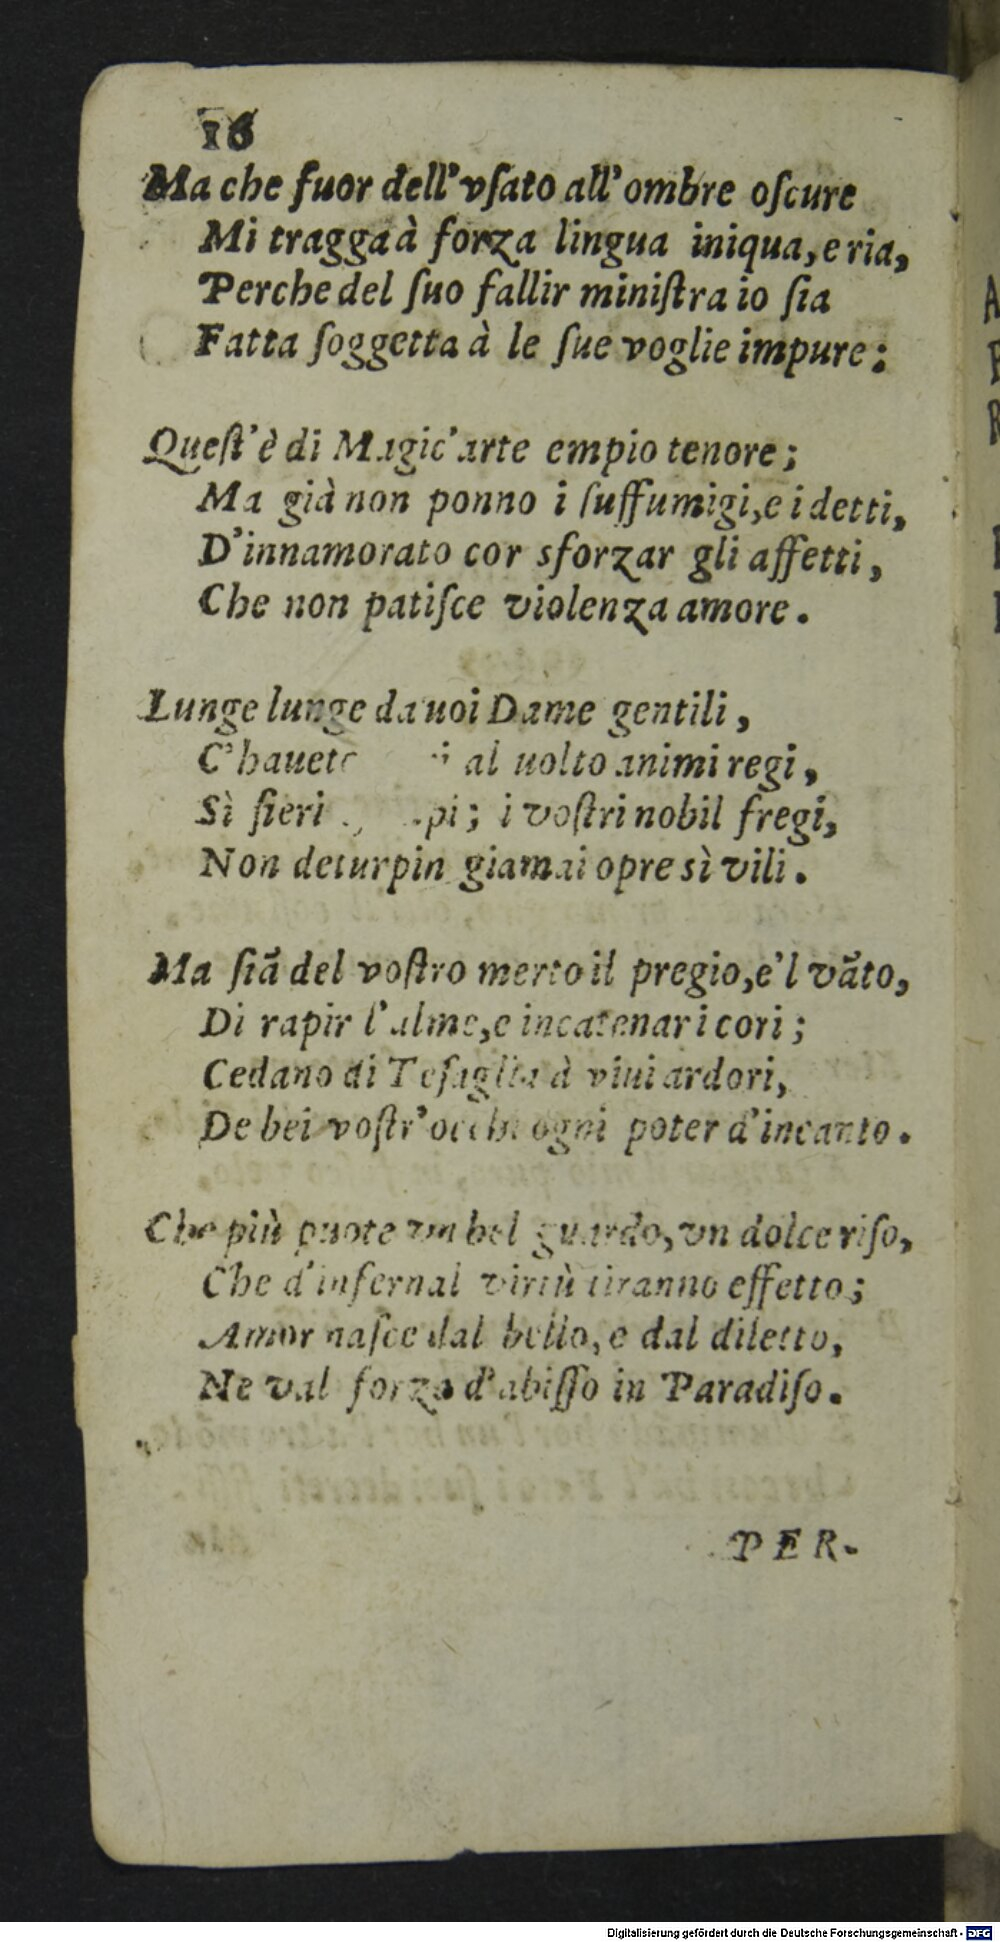 16
Ma che fuor dell'vſato all'ombre oſcure
Mi tragga à forza lingua iniqua, e ria,
Perche del ſuo fallir miniſtra io ſia
Fatta ſoggetta à le ſue voglie impure;
Queſt'è di Magic'arte empio tenore;
Ma già non ponno i ſuffumigi, e i detti,
D'innamorato cor sforzar gli affetti,
Che non patiſce violenza amore.
Lunge lunge da uoi Dame gentili,
C'hauete al uolto animi regi,
Sì fieri i voſtri nobil fregi,
Non deturpin giamai opre sì vili.
Ma ſiā del voſtro merto il pregio, e'l vāto,
Di rapir l'alme, e incatenar i cori;
Cedano di Teſaglia à viui ardori,
De bei voſtr'occhi ogni poter d'incanto.
Che più puote vn bel guardo, vn dolce riſo,
Che d'infernal virtù tiranno effetto;
Amor naſce dal bello, e dal diletto,
Ne val forza d'abiſſo in Paradiſo.
PER-
Digitalisierung gefördert durch die Deutsche Forschungsgemeinschaft - DFG